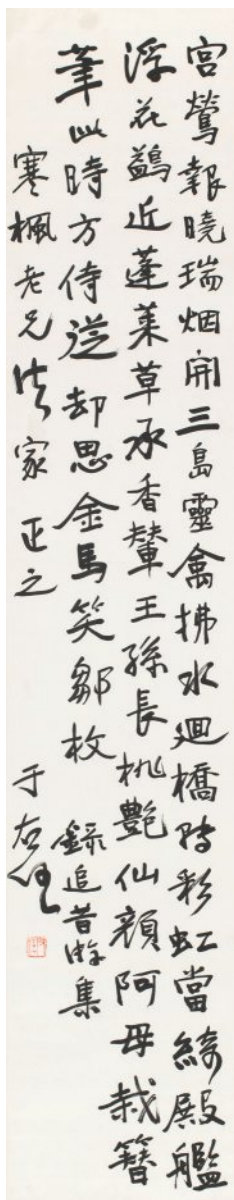 宮鶯報曉瑞烟開三島靈禽拂水迴橋轉彩虹當綺殿艦
浮花鷁近蓬萊草承香輦王孫長桃艷仙顏阿母栽簪
筆此時方侍從却思金馬笑鄒枚 錄追昔游集
寒楓老兄法家正之 于右任